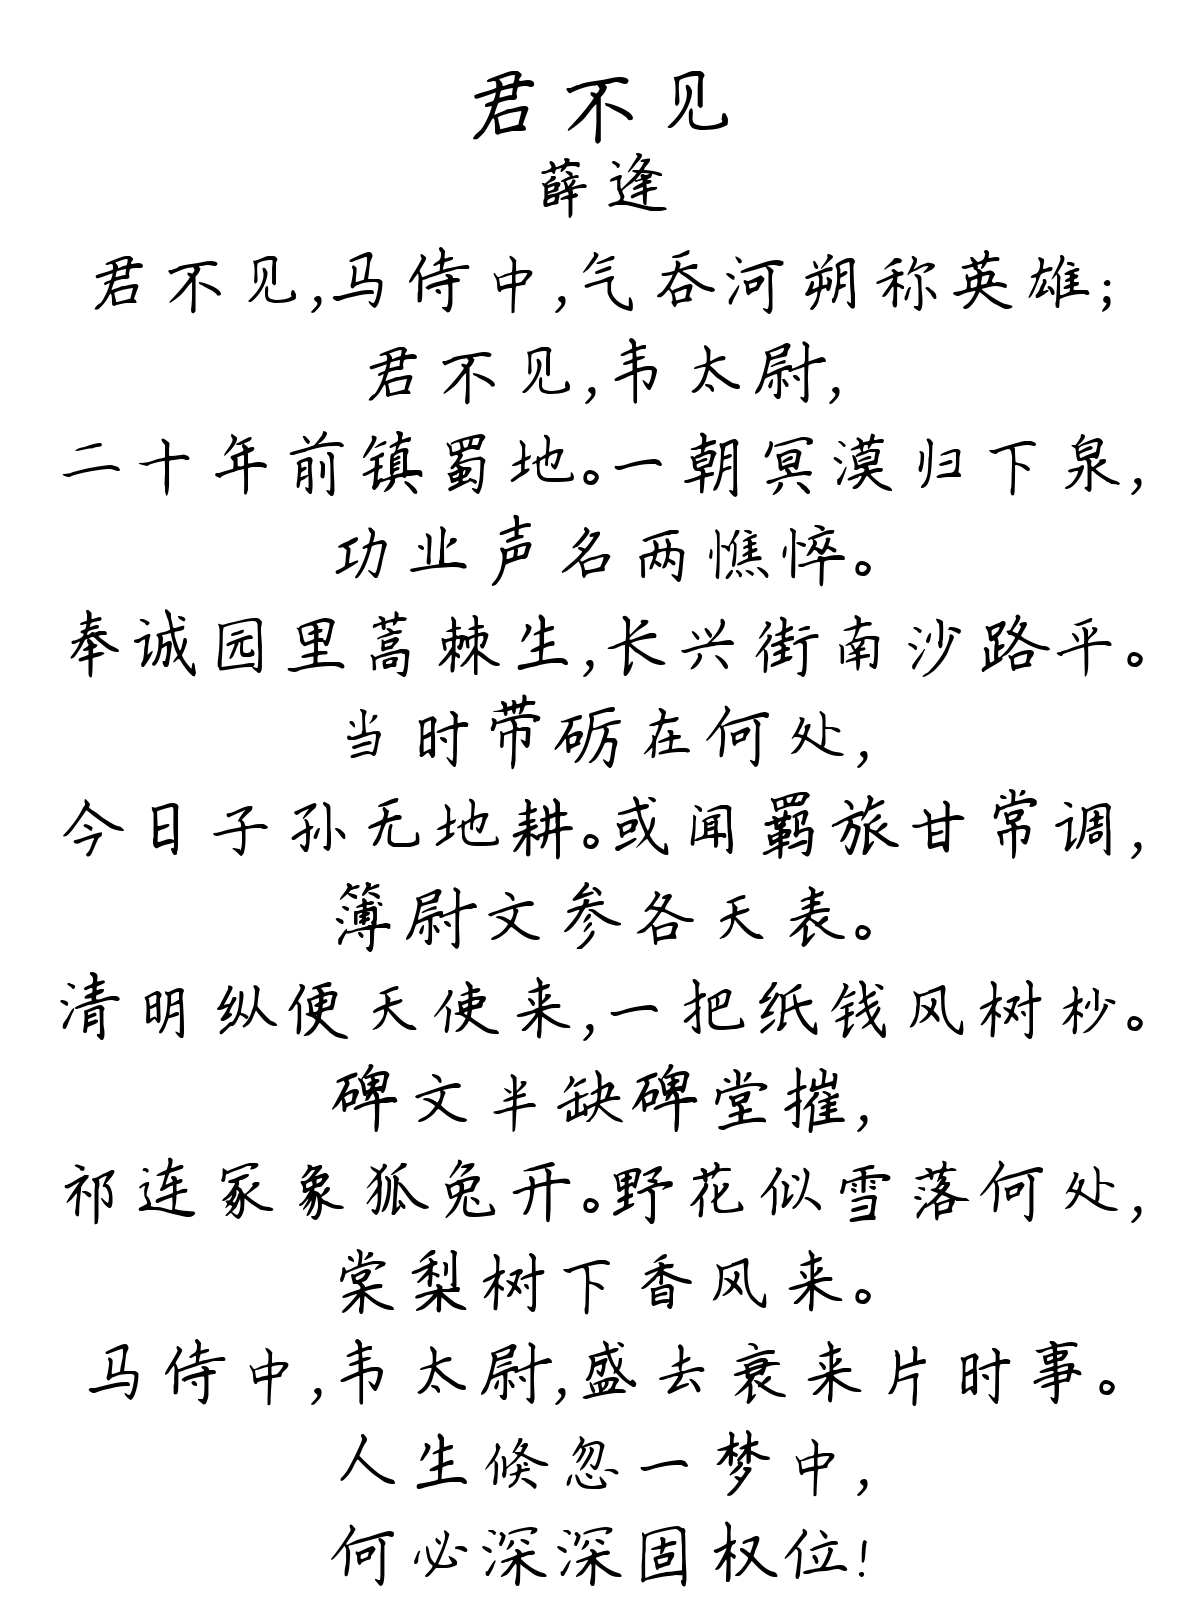 君不见
薛逢
君不见,马侍中,气吞河朔称英雄;
君不见,韦太尉,
二十年前镇蜀地。一朝冥漠归下泉,
功业声名两憔悴。
奉诚园里蒿棘生,长兴街南沙路平。
当时带砺在何处,
今日子孙无地耕。或闻羁旅甘常调,
簿尉文参各天表。
清明纵便天使来,一把纸钱风树杪。
碑文半缺碑堂摧,
祁连冢象狐兔开。野花似雪落何处,
棠梨树下香风来。
马侍中,韦太尉,盛去衰来片时事。
人生倏忽一梦中,
何必深深固权位!